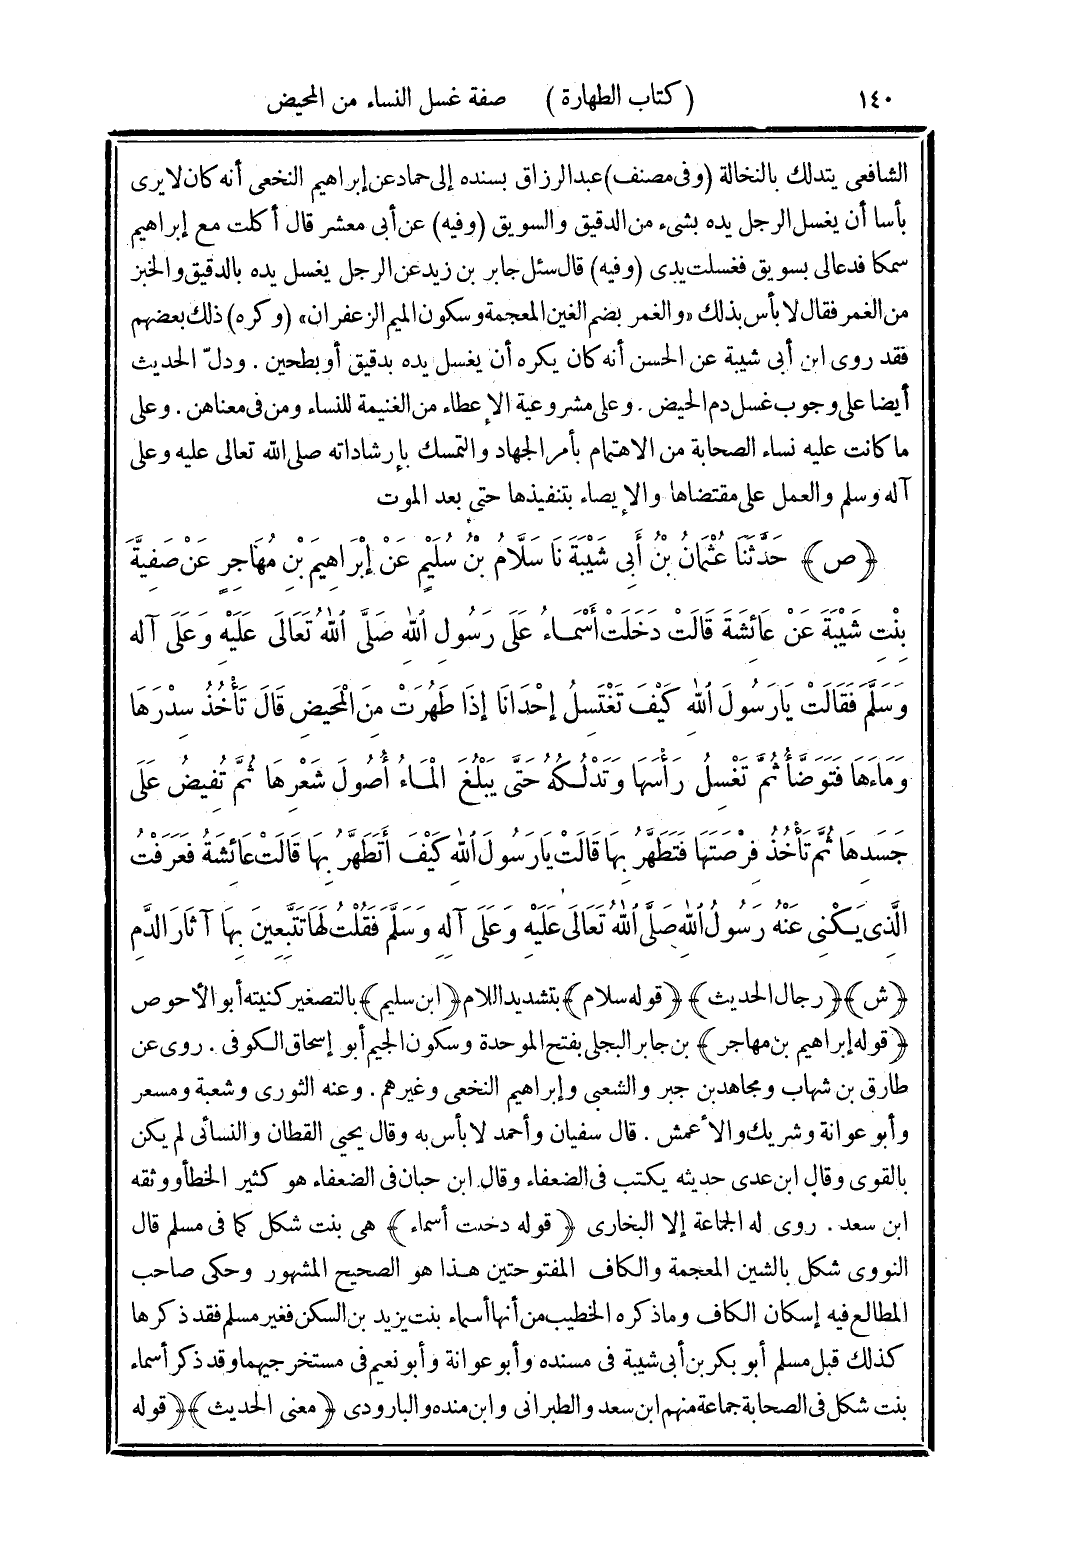 ١٤٠ (كتاب الطهارة) صفة غسل النساء من المحيض
الشافعى يتدلك بالنخالة (وفى مصنف) عبدالرزاق بسنده إلى حماد عن إبراهيم النخعى أنه كان لا يرى
بأسا أن يغسل الرجل يده بشىء من الدقيق والسويق (وفيه) عن أبى معشر قال أكلت مع إبراهيم
سمكا فدعالى بسويق فغسلت يدى (وفيه) قال سئل جابر بن زيد عن الرجل يغسل يده بالدقيق والخبز
من الغمر فقال لا بأس بذلك «والغمر بضم الغين المعجمة وسكون الميم الزعفران» (وكره) ذلك بعضهم
فقد روى ابن أبى شيبة عن الحسن أنه كان يكره أن يغسل يده بدقيق أو بطحين . ودلّ الحديث
أيضا على وجوب غسل دم الحيض . وعلى مشروعية الإعطاء من الغنيمة للنساء ومن فى معناهن . وعلى
ما كانت عليه نساء الصحابة من الاهتمام بأمر الجهاد والتمسك بإرشاداته صلى الله تعالى عليه وعلى
آله وسلم والعمل على مقتضاها والإيصاء بتنفيذها حتى بعد الموت
﴿ص﴾ حَدَّثَنَا عُثْمَانُ بْنُ أَبِى شَيْبَةَ نَا سَلَّامُ بْنُ سُلَيْمٍ عَنْ إِبْرَاهِيمَ بْنِ مُهَاجِرٍ عَنْ صَفِيَّةَ
بِنْتِ شَيْبَةَ عَنْ عَائِشَةَ قَالَتْ دَخَلَتْ أَسْمَاءُ عَلَى رَسُولِ اللهِ صَلَّى اللهُ تَعَالَى عَلَيْهِ وَعَلَى آلِهِ
وَسَلَّمَ فَقَالَتْ يَارَسُولَ اللهِ كَيْفَ تَغْتَسِلُ إِحْدَانَا إِذَا طَهُرَتْ مِنَ الْمَحِيضِ قَالَ تَأْخُذُ سِدْرَهَا
وَمَاءَهَا فَتَوَضَّأُ ثُمَّ تَغْسِلُ رَأْسَهَا وَتَدْلُكُهُ حَتَّى يَبْلُغَ الْمَاءُ أُصُولَ شَعْرِهَا ثُمَّ تُفِيضُ عَلَى
جَسَدِهَا ثُمَّ تَأْخُذُ فِرْصَتَهَا فَتَطَهَّرُ بِهَا قَالَتْ يَارَسُولَ اللهِ كَيْفَ أَتَطَهَّرُ بِهَا قَالَتْ عَائِشَةُ فَعَرَفْتُ
الَّذِى يَكْنِى عَنْهُ رَسُولُ اللهِ صَلَّى اللهُ تَعَالَى عَلَيْهِ وَعَلَى آلِهِ وَسَلَّمَ فَقُلْتُ لَهَا تَتَّبِعِينَ بِهَا آثَارَ الدَّمِ
﴿ش﴾ ﴿رجال الحديث﴾ ﴿قوله سلام﴾ بتشديد اللام ﴿ابن سليم﴾ بالتصغير كنيته أبو الأحوص
﴿قوله إبراهيم بن مهاجر﴾ بن جابر البجلى بفتح الموحدة وسكون الجيم أبو إسحاق الكوفى . روى عن
طارق بن شهاب ومجاهد بن جبر والشعبى وإبراهيم النخعى وغيرهم . وعنه الثورى وشعبة ومسعر
وأبو عوانة وشريك والأعمش . قال سفيان وأحمد لا بأس به وقال يحيى القطان والنسائى لم يكن
بالقوى وقال ابن عدى حديثه يكتب فى الضعفاء وقال ابن حبان فى الضعفاء هو كثير الخطأ ووثقه
ابن سعد . روى له الجماعة إلا البخارى ﴿قوله دخلت أسماء﴾ هى بنت شكل كما فى مسلم قال
النووى شكل بالشين المعجمة والكاف المفتوحتين هذا هو الصحيح المشهور وحكى صاحب
المطالع فيه إسكان الكاف وما ذكره الخطيب من أنها أسماء بنت يزيد بن السكن فغير مسلم فقد ذكرها
كذلك قبل مسلم أبو بكر بن أبى شيبة فى مسنده وأبو عوانة وأبو نعيم فى مستخرجيهما وقد ذكر أسماء
بنت شكل فى الصحابة جماعة منهم ابن سعد والطبرانى وابن منده والبارودى ﴿معنى الحديث﴾ ﴿قوله